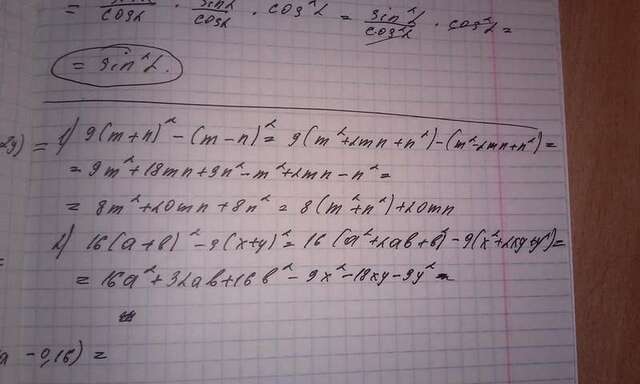 = sin²α/cosα · sin²/cosα · cos²α = sin²α/cos²α · cos²α =
= sin²α.
2y) = 1) 9(m+n)² - (m-n)² = 9(m²+2mn+n²) - (m²-2mn+n²) =
= 9m²+18mn+9n²-m²+2mn-n² =
= 8m²+20mn+8n² = 8(m²+n²)+20mn
2) 16(a+b)² - 9(x+y)² = 16(a²+2ab+b²) - 9(x²+2xy+y²) =
= 16a²+32ab+16b²-9x²-18xy-9y²
a -0,16) =